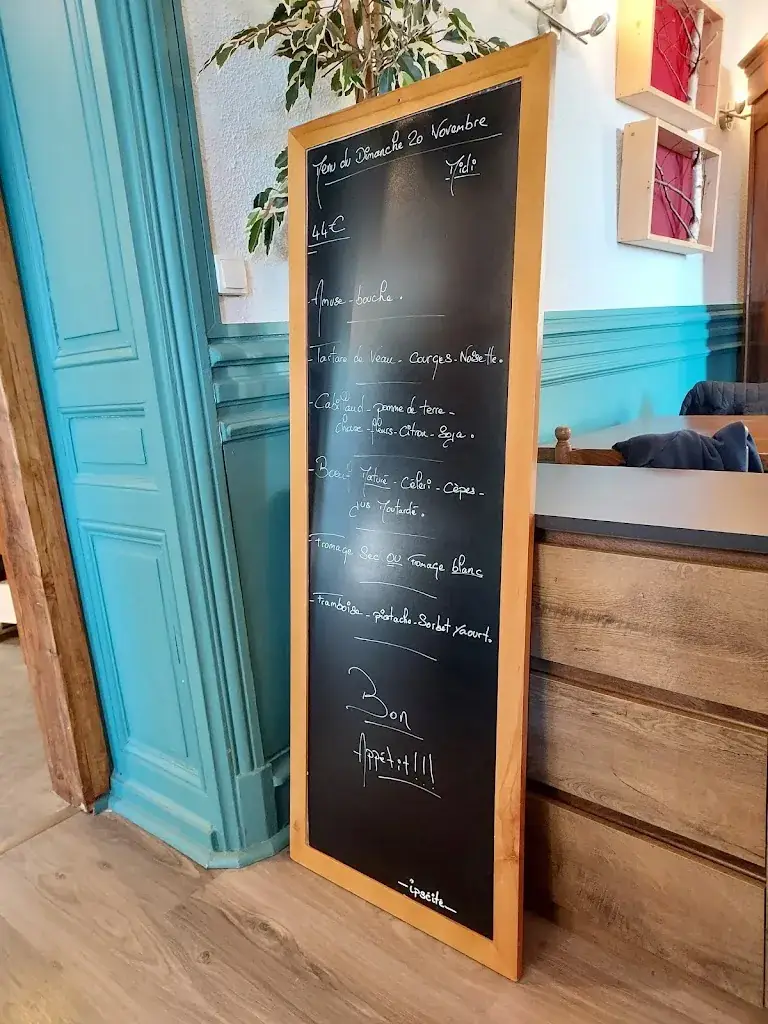 Menu du Dimanche 20 Novembre
Midi
44€
- Amuse-bouche.
- Tartare de Veau - Courges - Noisette.
- Cabillaud - pomme de terre -
Choux-fleurs - Citron - Soja.
- Boeuf Maturé - Céleri - Cèpes -
jus Moutarde.
- Fromage Sec ou Fromage blanc
- Framboise - pistache - Sorbet Yaourt.
Bon
Appétit!!!
- ipséité -